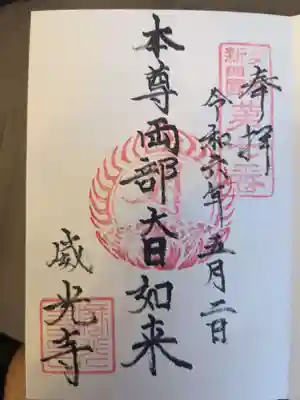 奉拝
令和六年五月二日
本尊両部大日如来
威光寺